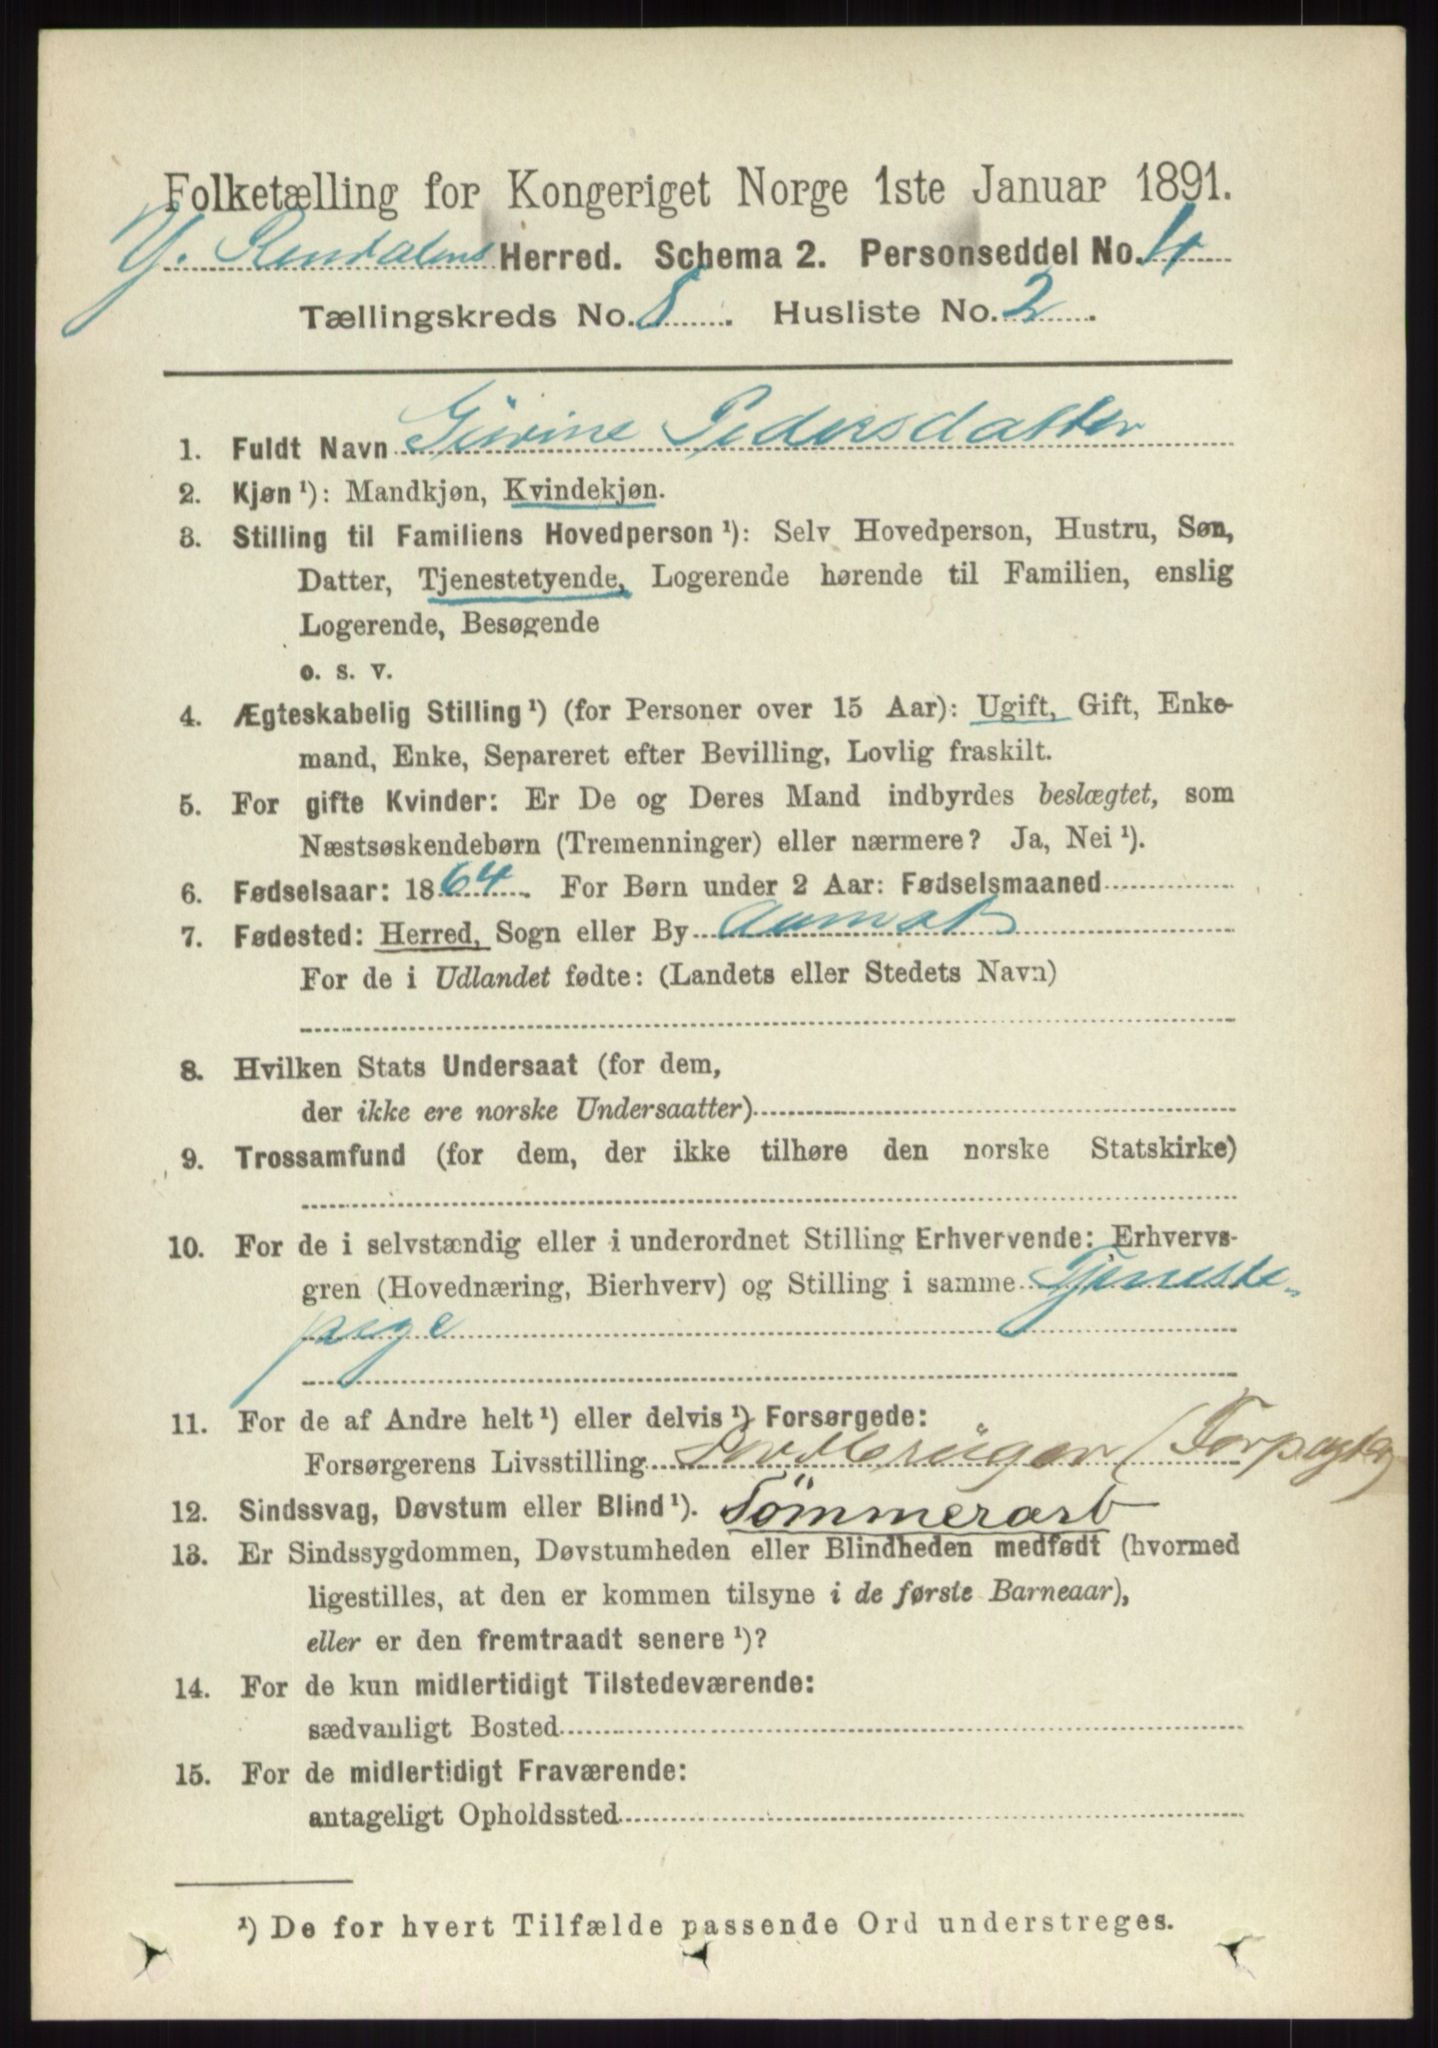 Folketælling for Kongeriget Norge 1ste Januar 1891.
Y. Rendalens Herred. Schema 2. Personseddel No. 4
Tællingskreds No. 8. Husliste No. 2.
1. Fuldt Navn Gurine Pedersdatter
2. Kjøn ¹): Mandkjøn, Kvindekjøn.
3. Stilling til Familiens Hovedperson ¹): Selv Hovedperson, Hustru, Søn,
Datter, Tjenestetyende, Logerende hørende til Familien, enslig
Logerende, Besøgende
o. s. v.
4. Ægteskabelig Stilling ¹) (for Personer over 15 Aar): Ugift, Gift, Enke-
mand, Enke, Separeret efter Bevilling, Lovlig fraskilt.
5. For gifte Kvinder: Er De og Deres Mand indbyrdes beslægtet, som
Næstsøskendebørn (Tremenninger) eller nærmere? Ja, Nei ¹).
6. Fødselsaar: 1864. For Børn under 2 Aar: Fødselsmaaned
7. Fødested: Herred, Sogn eller By Aamot
For de i Udlandet fødte: (Landets eller Stedets Navn)
8. Hvilken Stats Undersaat (for dem,
der ikke ere norske Undersaatter)
9. Trossamfund (for dem, der ikke tilhøre den norske Statskirke)
10. For de i selvstændig eller i underordnet Stilling Erhvervende: Erhvervs-
gren (Hovednæring, Bierhverv) og Stilling i samme Tjeneste-
pige
11. For de af Andre helt ¹) eller delvis ¹) Forsørgede:
Forsørgerens Livsstilling (Forpagter)
12. Sindssvag, Døvstum eller Blind ¹). Tömmerarb
13. Er Sindssygdommen, Døvstumheden eller Blindheden medfødt (hvormed
ligestilles, at den er kommen tilsyne i de første Barneaar),
eller er den fremtraadt senere ¹)?
14. For de kun midlertidigt Tilstedeværende:
sædvanligt Bosted
15. For de midlertidigt Fraværende:
antageligt Opholdssted
¹) De for hvert Tilfælde passende Ord understreges.